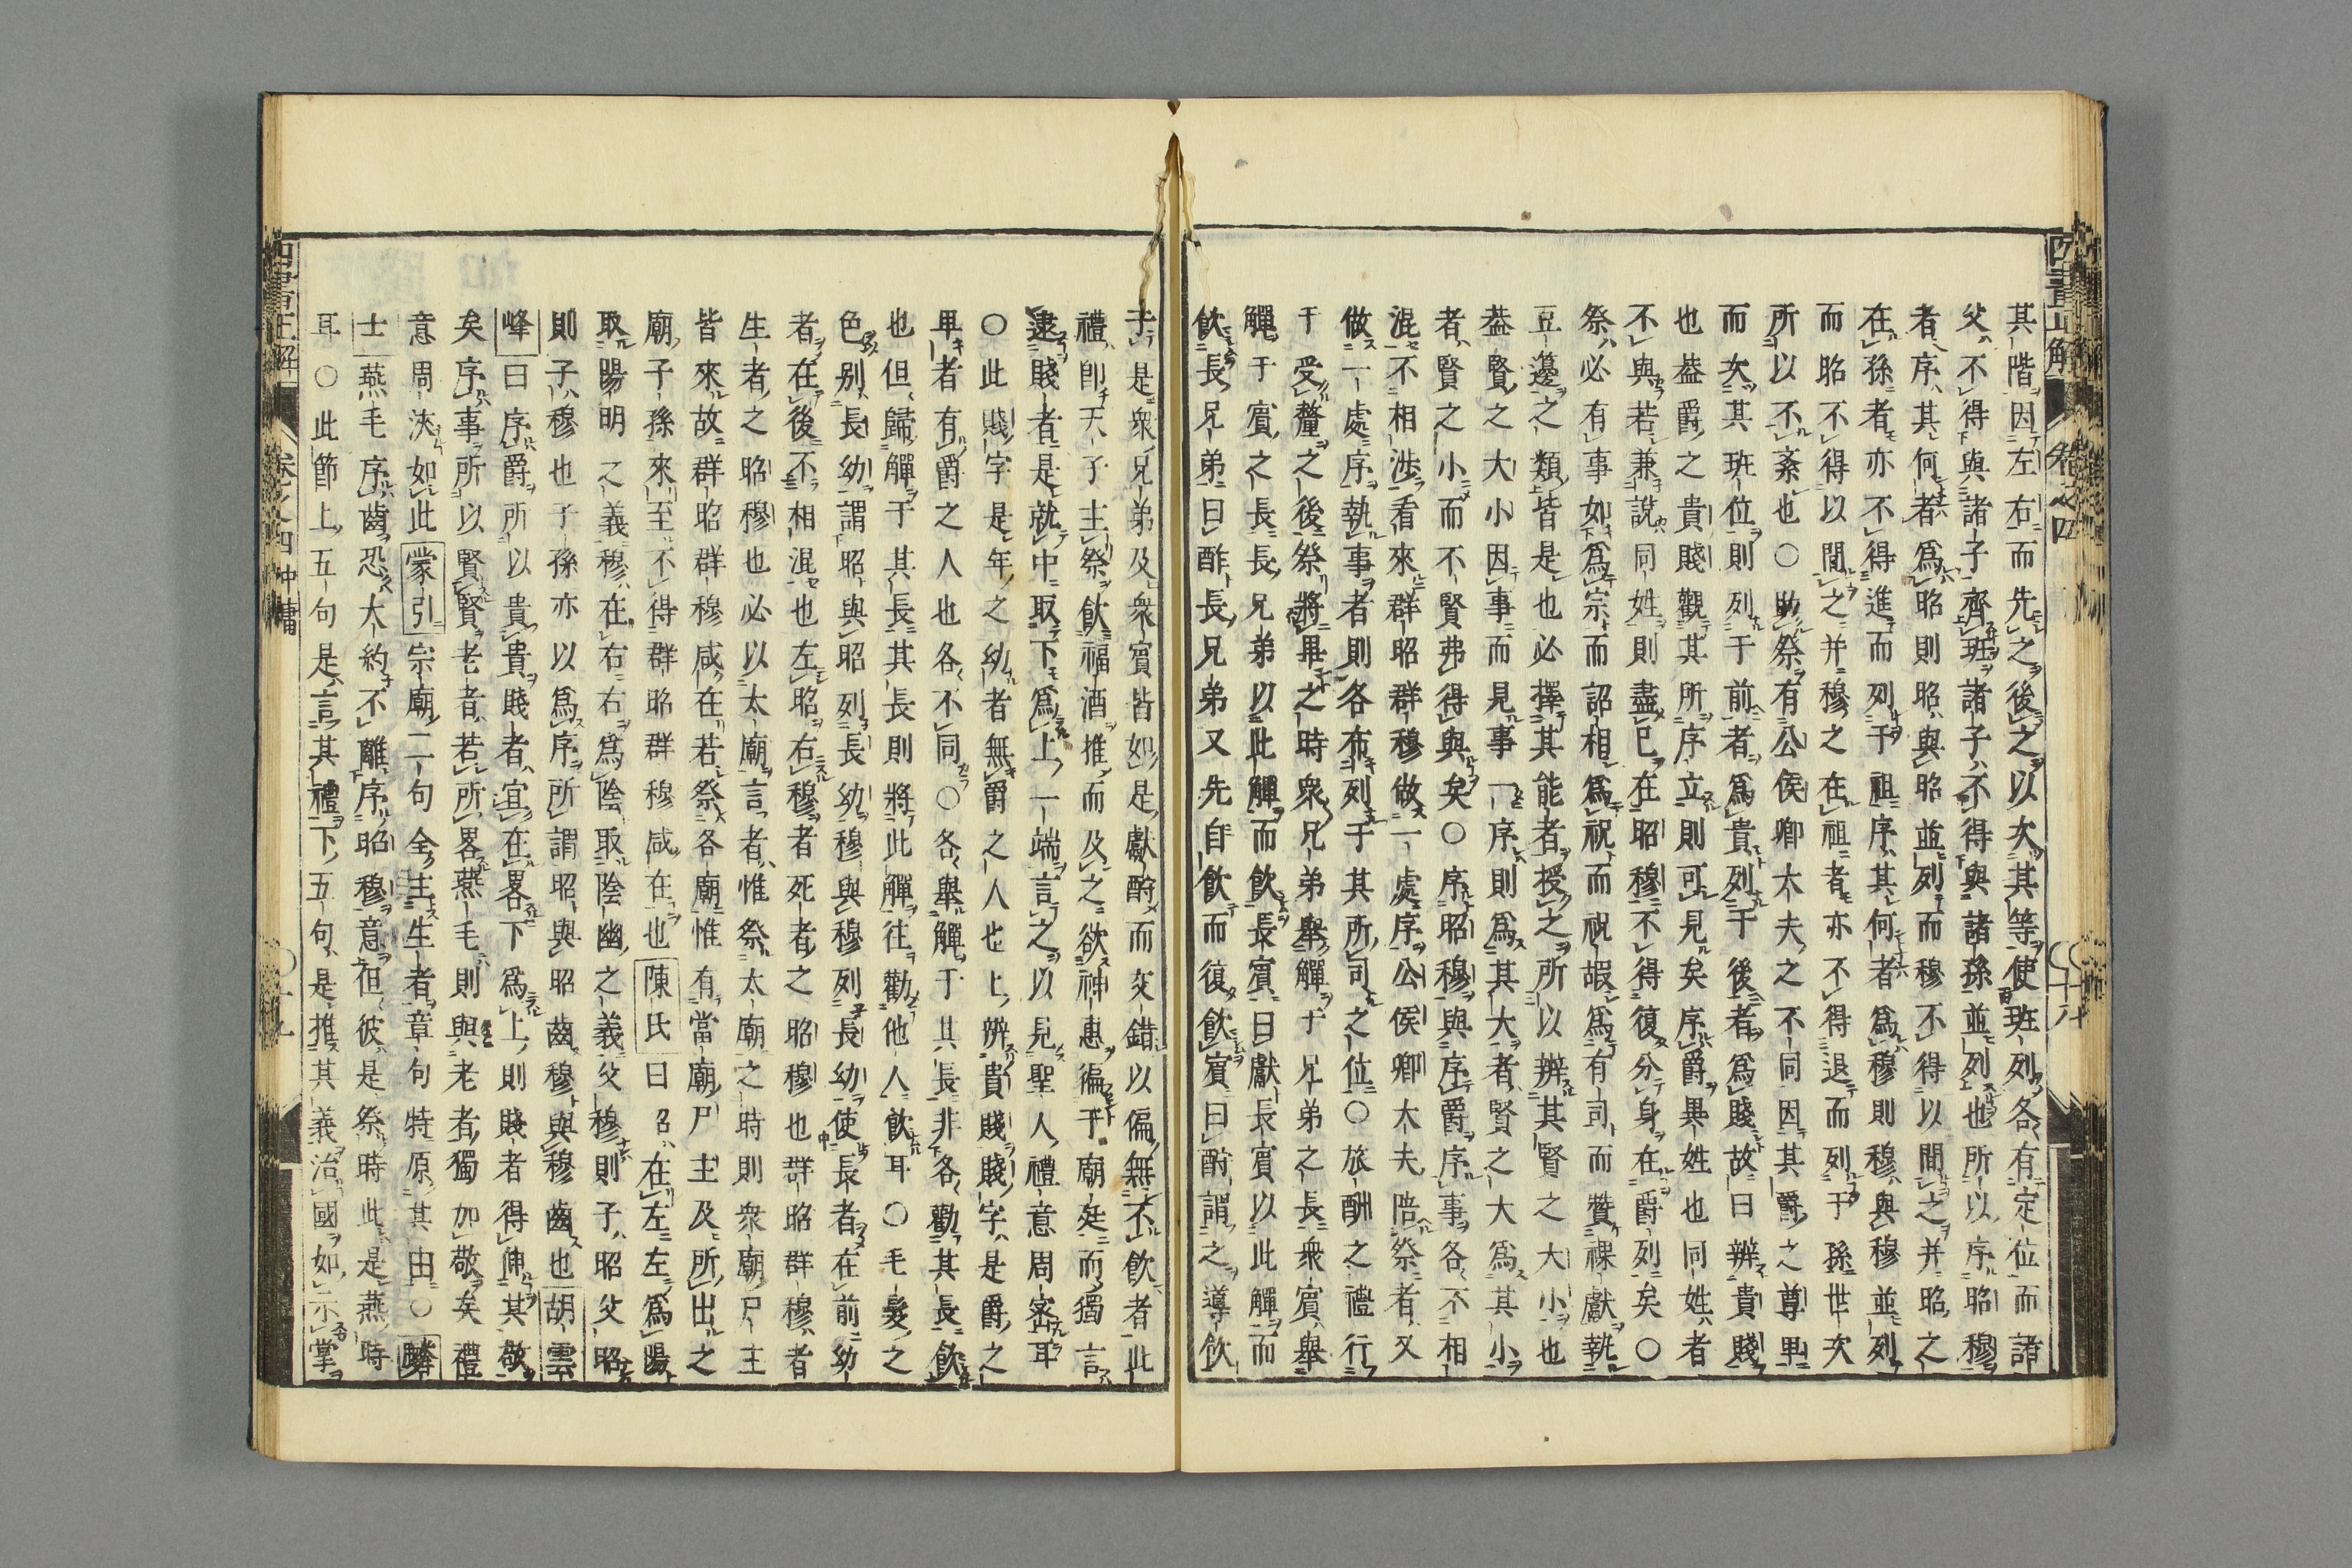 四書正解
卷之四
其階因左右而先之後之以次其等使班列各有定位而諸
父不得與諸子齊班諸子不得與諸孫並列也所以序昭穆
者序其何者爲昭則昭與昭並列而穆不得以間之并昭之
在孫者亦不得進而列于祖序其何者爲穆則穆與穆並列
而昭不得以間之并穆之在祖者亦不得退而列于孫世次
所以不紊也○助祭有公侯卿大夫之不同因其爵之尊卑
而次其班位則列于前者爲貴列于後者爲賤故曰辨貴賤
也葢爵之貴賤觀其所序立則可見矣序爵異姓也同姓者
不與若兼說同姓則盡已在昭穆不得復分身在爵列矣○
祭必有事如爲宗而詔相爲祝而祝嘏爲有司而贊祼獻執
豆籩之類皆是也必擇其能者授之所以辨其賢之大小也
葢賢之大小因事而見事一序則爲其大者賢之大爲其小
者賢之小而不賢弗得與矣○序昭穆與序爵序事各不相
混不相涉看來群昭群穆做一處序公侯卿大夫陪祭者又
做一處序執事者則各布列于其所司之位○旅酬之禮行
于受釐之後祭將畢之時衆兄弟舉觶于兄弟之長衆賓舉
觶于賓之長長兄弟以此觶而飲長賓曰獻長賓以此觶而
飲長兄弟曰酢長兄弟又先自飲而復飲賓曰酧謂之導飲
于是衆兄弟及衆賓皆如是獻酧而交錯以徧無不飲者此
禮卽天子主祭飲福酒推而及之欲神惠徧于廟廷而獨言
逮賤者是就中取下爲上一端言之以見聖人禮意周密耳
○此賤字是年之幼者無爵之人也上辨貴賤賤字是爵之
卑者有爵之人也各不同○各舉觶于其長非各勸其長飲
也但歸觶于其長其長則將此觶往勸他人飲耳○毛髮之
色别長幼謂昭與昭列長幼穆與穆列長幼使長者在前幼
者在後不相混也左昭右穆者死者之昭穆也群昭群穆者
生者之昭穆也必以太廟言者惟祭太廟之時則衆廟尸主
皆來故群昭群穆咸在若祭各廟惟有當廟尸主及所出之
廟子孫來至不得群昭群穆咸在也陳氏曰昭在左左爲陽
取陽明之義穆在右右爲陰取陰幽之義父穆則子昭父昭
則子穆也子孫亦以爲序所謂昭與昭齒穆與穆齒也胡雲
峰曰序爵所以貴貴賤者宜在畧下爲上則賤者得伸其敬
矣序事所以賢賢老者若所畧燕毛則與老者獨加敬矣禮
意周浹如此蒙引宗廟二句全主生者章句特原其由○麟
士燕毛序齒恐大約不離序昭穆意但彼是祭時此是燕時
耳○此節上五句是言其禮下五句是推其義治國如示掌
四書正解
卷之四
中庸